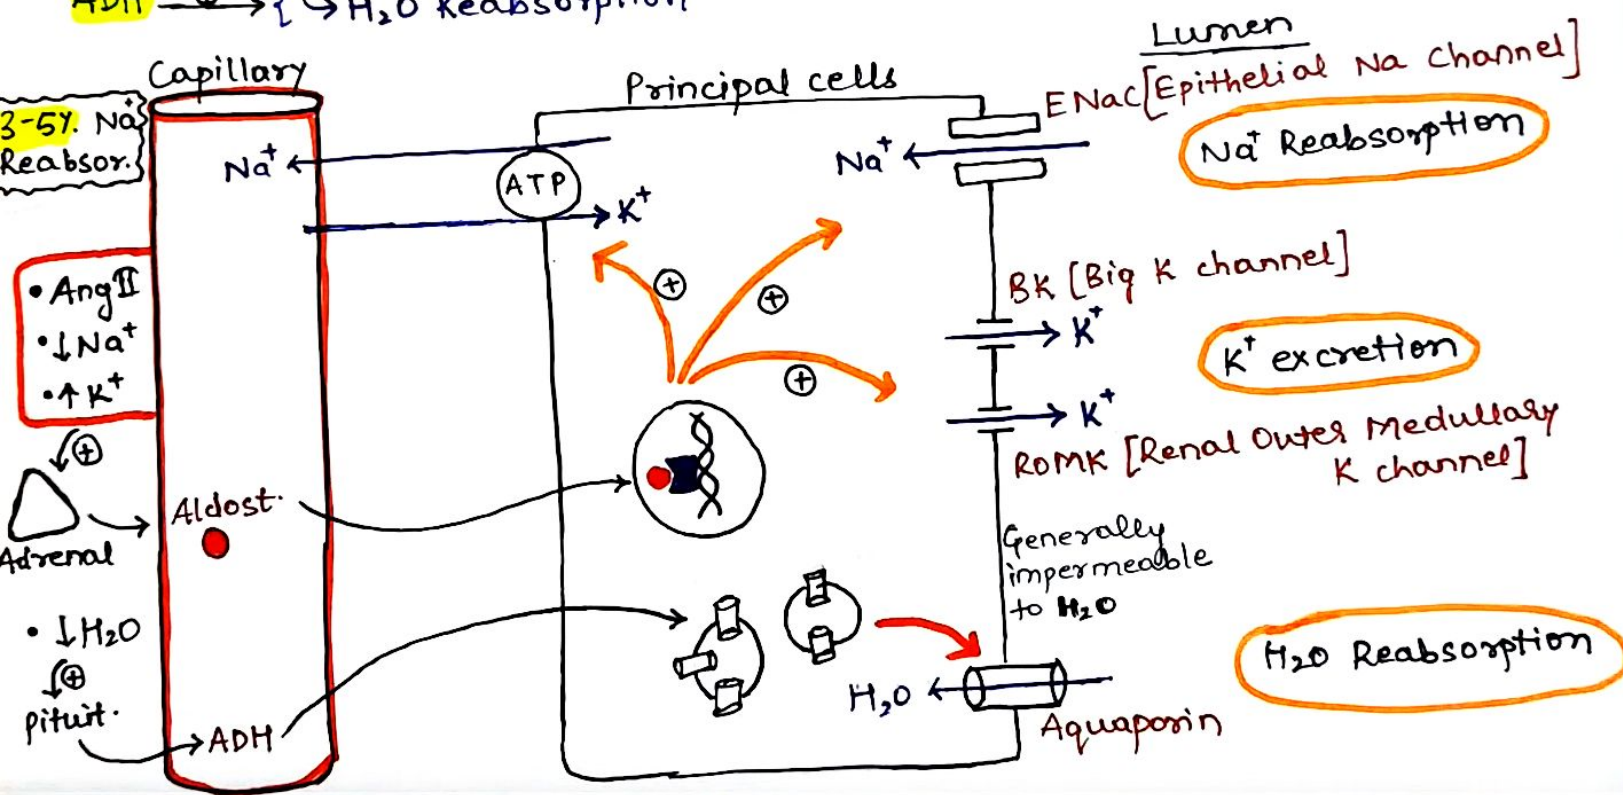 ADH → { ↳ H₂O Reabsorption
Lumen
Capillary
Principal cells
ENaC [Epithelial Na Channel]
3-5%. Na⁺
Reabsor.
Na⁺
ATP
K⁺
Na⁺
Na⁺ Reabsorption
• Ang II
• ↓Na⁺
• ↑K⁺
⊕
⊕
⊕
⊕
BK [Big K channel]
K⁺
K⁺ excretion
K⁺
ROMK [Renal Outer Medullary
K channel]
Adrenal
Aldost.
Generally
impermeable
to H₂O
• ↓H₂O
⊕
pituit.
ADH
H₂O
Aquaporin
H₂O Reabsorption